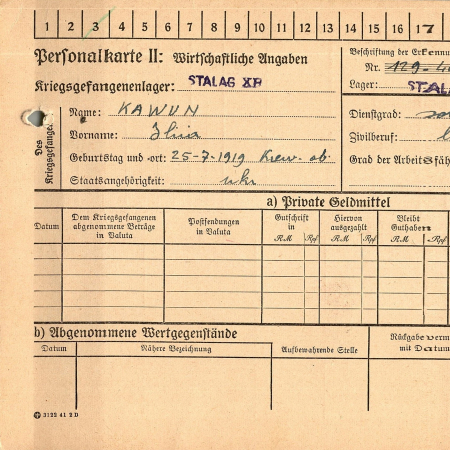 1 2 3 4 5 6 7 8 9 10 11 12 13 14 15 16 17
Personalkarte II: Wirtschaftliche Angaben
Beschriftung der Erkennu
Nr. 129.4
Kriegsgefangenenlager: STALAG XB
Lager: STAL
Des Kriegsgefange
Name: KAWUN
Dienstgrad:
Vorname: Ilia
Zivilberuf:
Geburtstag und -ort: 25-7-1919 Kiew-ob
Grad der Arbeitsfäh
Staatsangehörigkeit: ukr
a) Private Geldmittel
Datum
Dem Kriegsgefangenen abgenommene Beträge in Valuta
Postsendungen in Valuta
Gutschrift in
RM Rpf
Hiervon ausgezahlt
RM Rpf
Bleibt Guthaben
RM Rpf
b) Abgenommene Wertgegenstände
Datum
Nähere Bezeichnung
Aufbewahrende Stelle
Rückgabe verm
mit Datum
3122 41 2 D